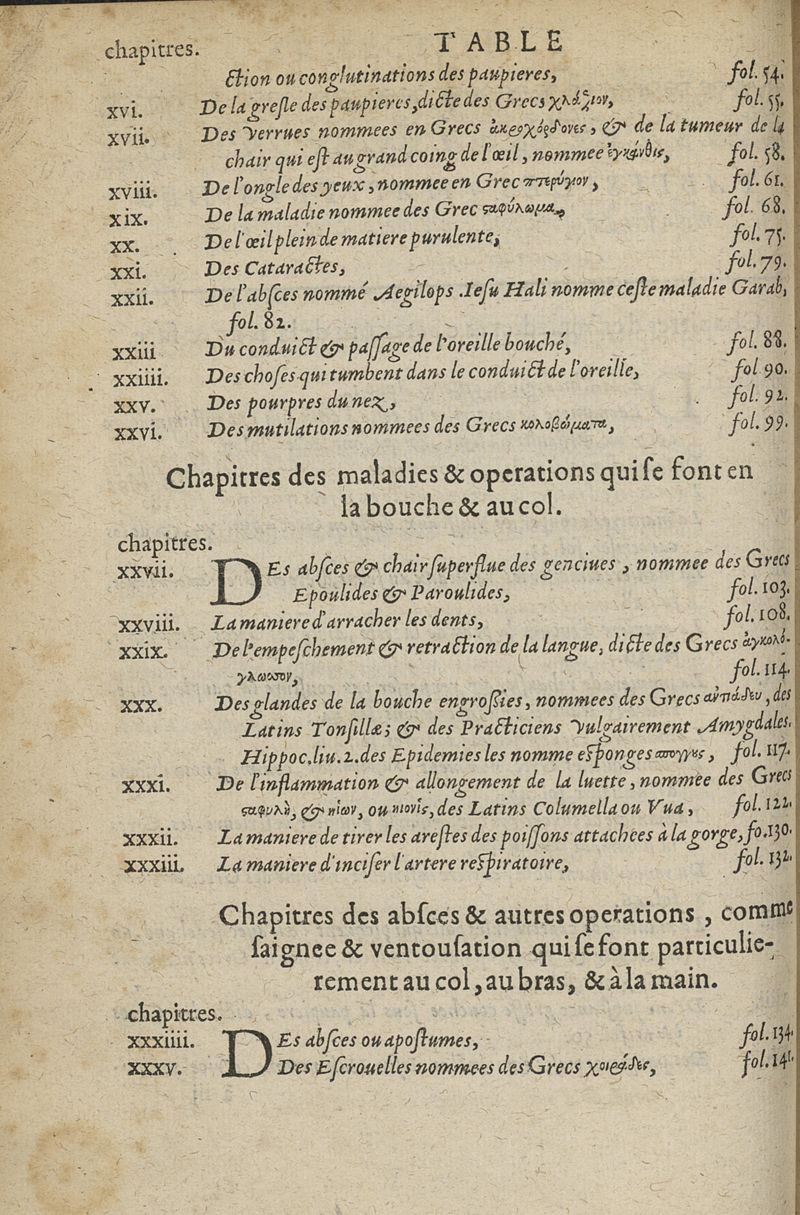 chapitres. TABLE
ction ou conglutinations des paupieres, fol. 54.
xvi. De la gresle des paupieres, dicte des Grecs χλάζιον, fol. 55.
xvii. Des verrues nommees en Grecs ἀκροχόρδονες, & de la tumeur de la
chair qui est au grand coing de l'œil, nommee ἐγκάνθις, fol. 58.
xviii. De l'ongle des yeux, nommee en Grec πτερύγιον, fol. 61.
xix. De la maladie nommee des Grec ςαφύλωμα, fol. 68.
xx. De l'œil plein de matiere purulente, fol. 75.
xxi. Des Cataractes, fol. 79.
xxii. De l'absces nommé Aegilops. Iesu Hali nomme ceste maladie Garab,
fol. 82.
xxiii Du conduict & passage de l'oreille bouché, fol. 88.
xxiiii. Des choses qui tumbent dans le conduict de l'oreille, fol 90.
xxv. Des pourpres du nez, fol. 92.
xxvi. Des mutilations nommees des Grecs κολοβώματα, fol. 99.
Chapitres des maladies & operations qui se font en
la bouche & au col.
chapitres.
xxvii. DEs absces & chair superflue des genciues, nommee des Grecs
Epoulides & Paroulides, fol. 103.
xxviii. La maniere d'arracher les dents, fol. 108.
xxix. De l'empeschement & retraction de la langue, dicte des Grecs ἀγκολό-
γλωσσον, fol. 114.
xxx. Des glandes de la bouche engrossies, nommees des Grecs ἀντιάδεν, des
Latins Tonsillæ; & des Practiciens vulgairement Amygdales.
Hippoc. liu. 2. des Epidemies les nomme esponges σπογγες, fol. 117.
xxxi. De l'inflammation & allongement de la luette, nommee des Grecs
ςαφυλὴ, & κίων, ou κιονὶς, des Latins Columella ou Vua, fol. 122.
xxxii. La maniere de tirer les arestes des poissons attachees à la gorge, fo. 130.
xxxiii. La maniere d'inciser l'artere respiratoire, fol. 132.
Chapitres des absces & autres operations, comme
saignee & ventousation qui se font particulie-
rement au col, au bras, & à la main.
chapitres.
xxxiiii. DEs absces ou apostumes, fol. 134.
xxxv. Des Escrouelles nommees des Grecs χοιράδες, fol. 141.